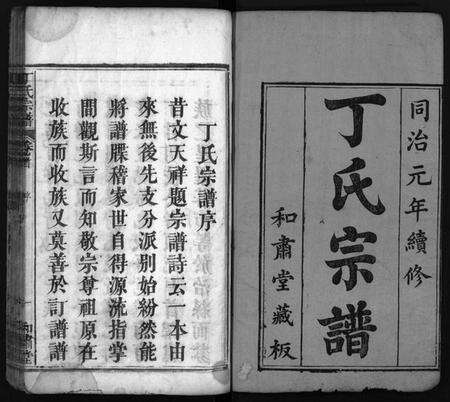 同治元年續修
丁氏宗譜
和肅堂藏板
丁氏宗譜序
昔文天祥題宗譜詩云一本由
來無後先支分派別始紛然能
將譜牒稽家世自得源流指掌
間觀斯言而知敬宗尊祖原在
收族而收族又莫善於訂譜譜